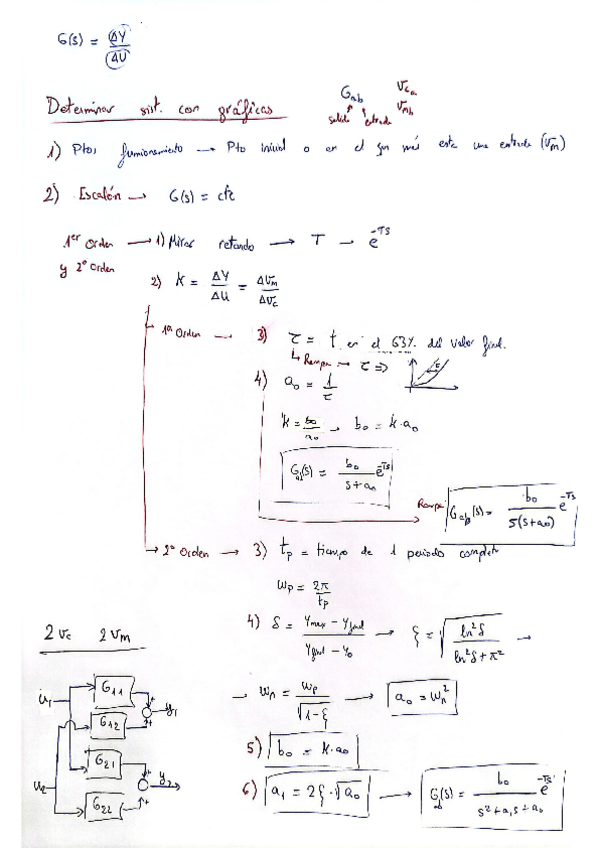 G(s) = ΔY / ΔU
Determinar sist. con gráficas
G_ab
salida entrada
V_ca
V_mb
1) Ptos funcionamiento → Pto inicial o en el que más esté una entrada (V_m)
2) Escalón → G(s) = cte
1er Orden y 2º Orden → 1) Mirar retardo → T → e^-Ts
2) K = ΔY / ΔU = ΔV_m / ΔV_c
1er Orden → 3) τ = t en el 63% del valor final.
Rampa → τ ⇒
τ
4) a₀ = 1 / τ
K = b₀ / a₀ → b₀ = K·a₀
G_ab(s) = b₀ / (s + a₀) e^-Ts
Rampa G_ab(s) = b₀ / (s(s + a₀)) e^-Ts
2º Orden → 3) t_p = tiempo de 1 periodo completo
ω_p = 2π / t_p
4) δ = (Y_max - Y_final) / (Y_final - Y_0) → ξ = √(ln²δ / (ln²δ + π²)) →
→ ω_n = ω_p / √(1-ξ) → a₀ = ω_n²
5) b₀ = K·a₀
6) a₁ = 2ξ·√a₀ → G_ab(s) = b₀ / (s² + a₁s + a₀) e^-Ts
2 V_c 2 V_m
u₁ G11 + y₁
G12 +
G21 + y₂
u₂ G22 +